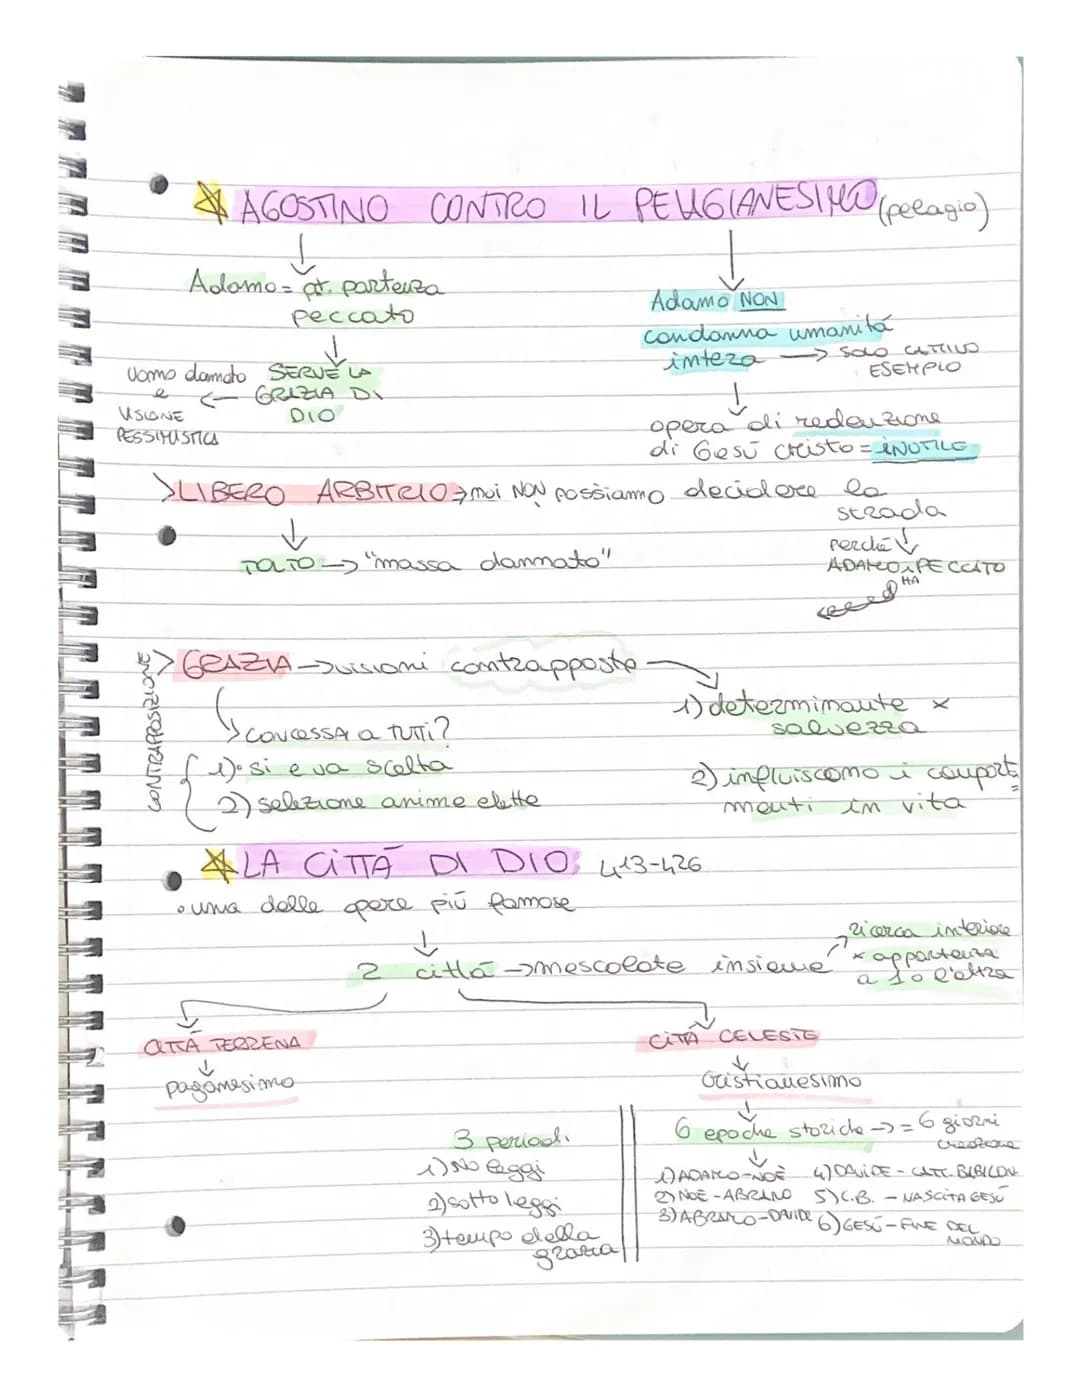 AGOSTINO CONTRO IL PELAGIANESIMO (pelagio)
Adamo = pt. partenza
peccato
SERVE LA
GRAZIA DI
DIO
Uomo dannato
e
VISIONE
PESSIMISTICA
Adamo NON
condanna umanità
intera → SOLO CATTIVO
ESEMPIO
opera di redenzione
di Gesù Cristo = INUTILE
> LIBERO ARBITRIO → noi NON possiamo decidere la
strada
perché
ADAMO HA PECCATO
TOLTO → "massa dannato"
CONTRAPPOSIZIONE
> GRAZIA → visioni contrapposte
1) determinante x
salvezza
2) influiscono i comporta
menti in vita
CONCESSA a TUTTI?
1) si e va scelta
2) selezione anime elette
LA CITTÀ DI DIO: 413-426
• una delle opere più famose
2 città → mescolate insieme
ricerca interiore
x appartenza
a 1 o l'altra
CITTÀ TERRENA
paganesimo
CITTÀ CELESTE
Cristianesimo
3 periodi
1) No leggi
2) sotto leggi
3) tempo della
grazia
6 epoche storiche → = 6 giorni
creazione
1) ADAMO-NOÈ
2) NOÈ-ABRAMO
3) ABRAMO-DAVIDE
4) DAVIDE - CATT. BABILON
5) C.B. - NASCITA GESÙ
6) GESÙ - FINE DEL
MONDO